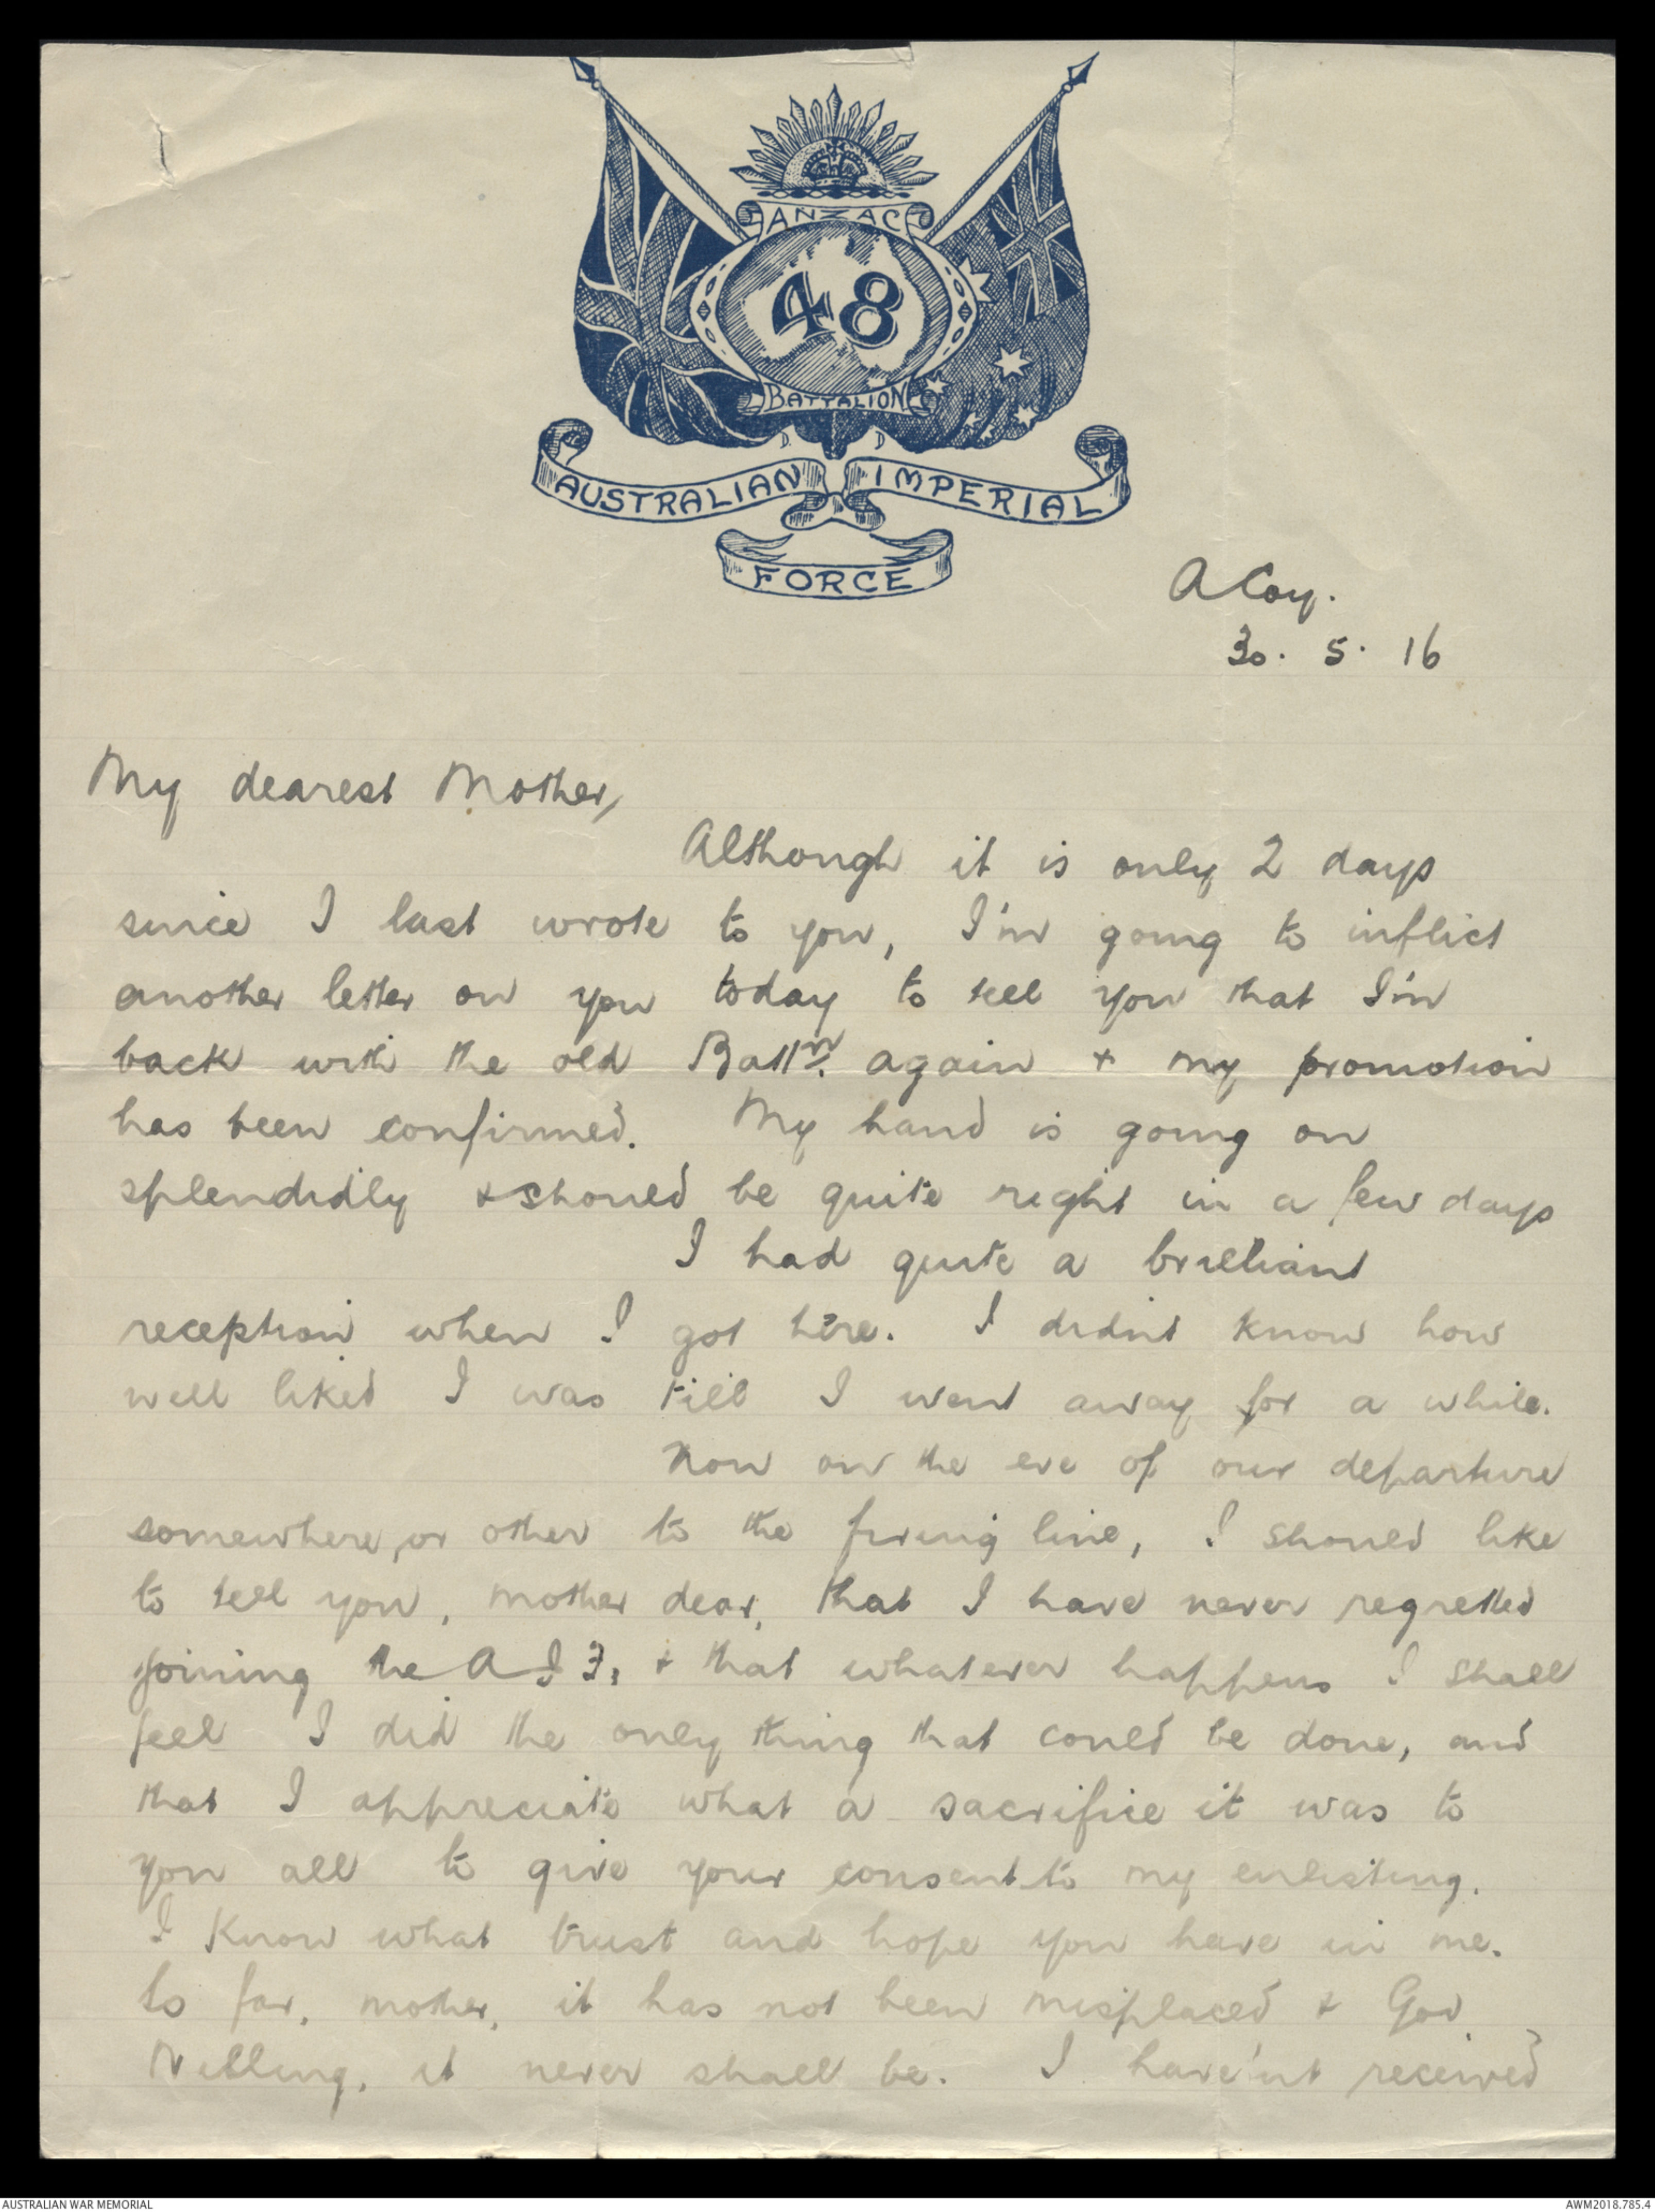 ANZAC
48
BATTALION
D. D
AUSTRALIAN IMPERIAL
FORCE
A Coy.
30. 5. 16
My dearest Mother,
Although it is only 2 days
since I last wrote to you, I'm going to inflict
another letter on you today to tell you that I'm
back with the old Battn. again & my promotion
has been confirmed. My hand is going on
splendidly & should be quite right in a few days
I had quite a brilliant
reception when I got here. I didnt know how
well liked I was till I went away for a while.
Now on the eve of our departure
somewhere, or other to the firing line, I should like
to tell you, mother dear, that I have never regretted
joining the A I F, & that whatever happens I shall
feel I did the only thing that could be done, and
that I appreciate what a sacrifice it was to
you all to give your consent to my enlisting.
I know what trust and hope you have in me.
So far, mother, it has not been misplaced & God
Willing, it never shall be. I have'nt received
AUSTRALIAN WAR MEMORIAL
AWM2018.785.4